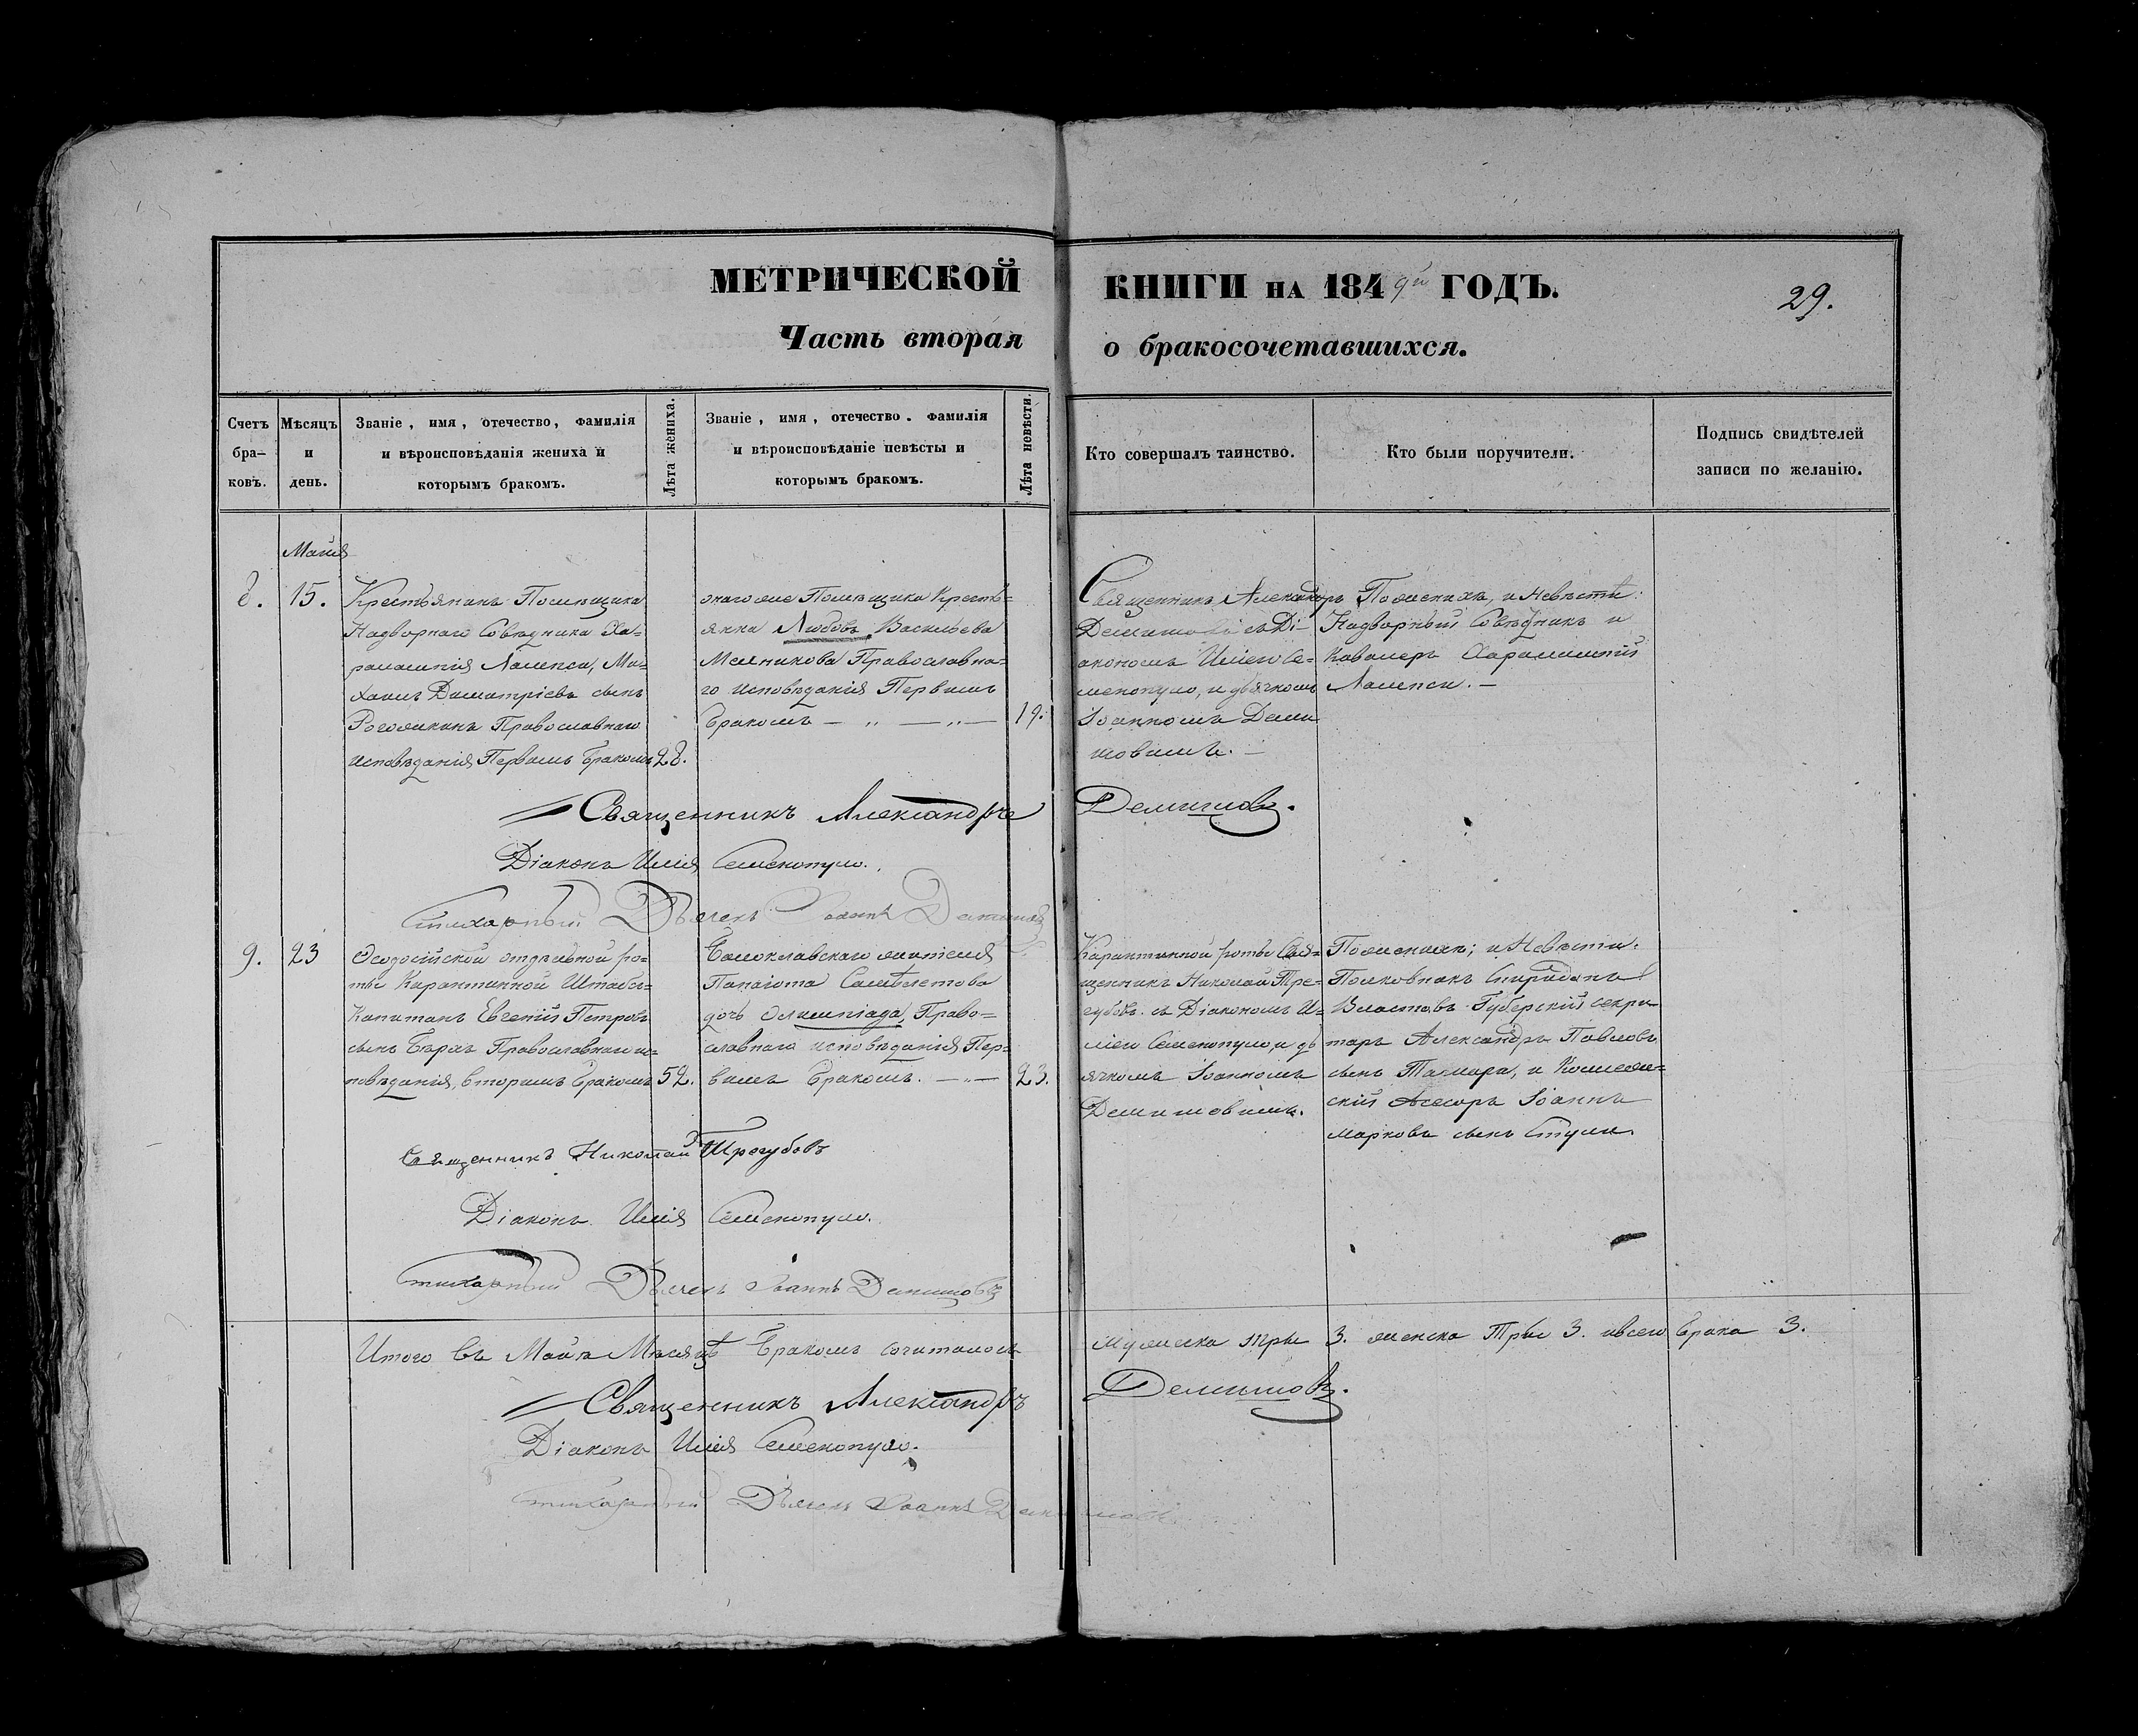 МЕТРИЧЕСКОЙ КНИГИ НА 1849й ГОДЪ.
29.
Часть вторая о бракосочетавшихся.
Счетъ бра-ковъ.
Мѣсяцъ и день.
Званіе, имя, отечество, фамилія
и вѣроисповѣданія жениха и
которымъ бракомъ.
Лѣта жениха.
Званіе, имя, отечество. фамилія
и вѣроисповѣданіе невѣсты и
которымъ бракомъ.
Лѣта невѣсти.
Кто совершалъ таинство.
Кто были поручители.
Подпись свидѣтелей
записи по желанію.
Маія
8.
15.
Крестьянинъ Помѣщика
Надворнаго Совѣдника Ха-
ралампія Лампси, Ми-
хаилъ Димитріевъ сынъ
Рогожкинъ Православнаго
исповѣданія Первымъ Бракомъ
28.
онагоже Помѣщика Кресть=
янка Любовь Васильева
Мельникова Православна-
го исповѣданія Первымъ
Бракомъ — „ — „ —
19.
Священникъ Александръ
съ Ді-
акономъ Иліею Се-
мекопуло, и дьячкомъ
Іоанномъ
По женихѣ, и Невѣсти:
Надворный Совѣдникъ и
Кавалеръ Харалампій
Лампси. —
Священникъ Александръ
Діаконъ Илія Семекопуло.
Стихарный Дьячекъ Іоаннъ
9.
23
Ѳеодосійской отдѣльной ро-
ты Карантинной Штабсъ-
Капитанъ Евгеній Петровъ
сынъ Православнаго ис-
повѣданія, вторымъ Бракомъ
52.
Балоклавскаго жителя
Панаіота
дочь Олимпіада, Право=
славнаго исповѣданія Пер-
вымъ Бракомъ. — „ —
23.
Карантинной роты Свя-
щенникъ Николай Тре-
губовъ. съ Діакономъ И-
ліею Семекопуло, и дь
ячкомъ Іоанномъ
По женихѣ; и Невѣсти:
Полковникъ Спиридонъ
Властовъ Губерскій секре
таръ Александръ Павловъ
сынъ Тамара, и Коллеж-
скій Асесоръ Іоаннъ
Марковъ сынъ Стули.
Священникъ Николай Трегубовъ
Діаконъ Илія Семекопуло.
Стихарный Дьячекъ Іоаннъ
Итого въ Маіѣ Мѣсяцѣ Бракомъ сочиталось мужеска три 3. женска Три 3. а всего брака 3.
Священникъ Александръ
Діаконъ Илія Семекопуло.
стихарный Дьячекъ Іоаннъ